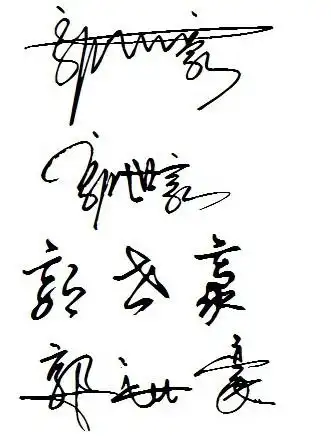 郭世豪
郭世豪
郭世豪
郭世豪